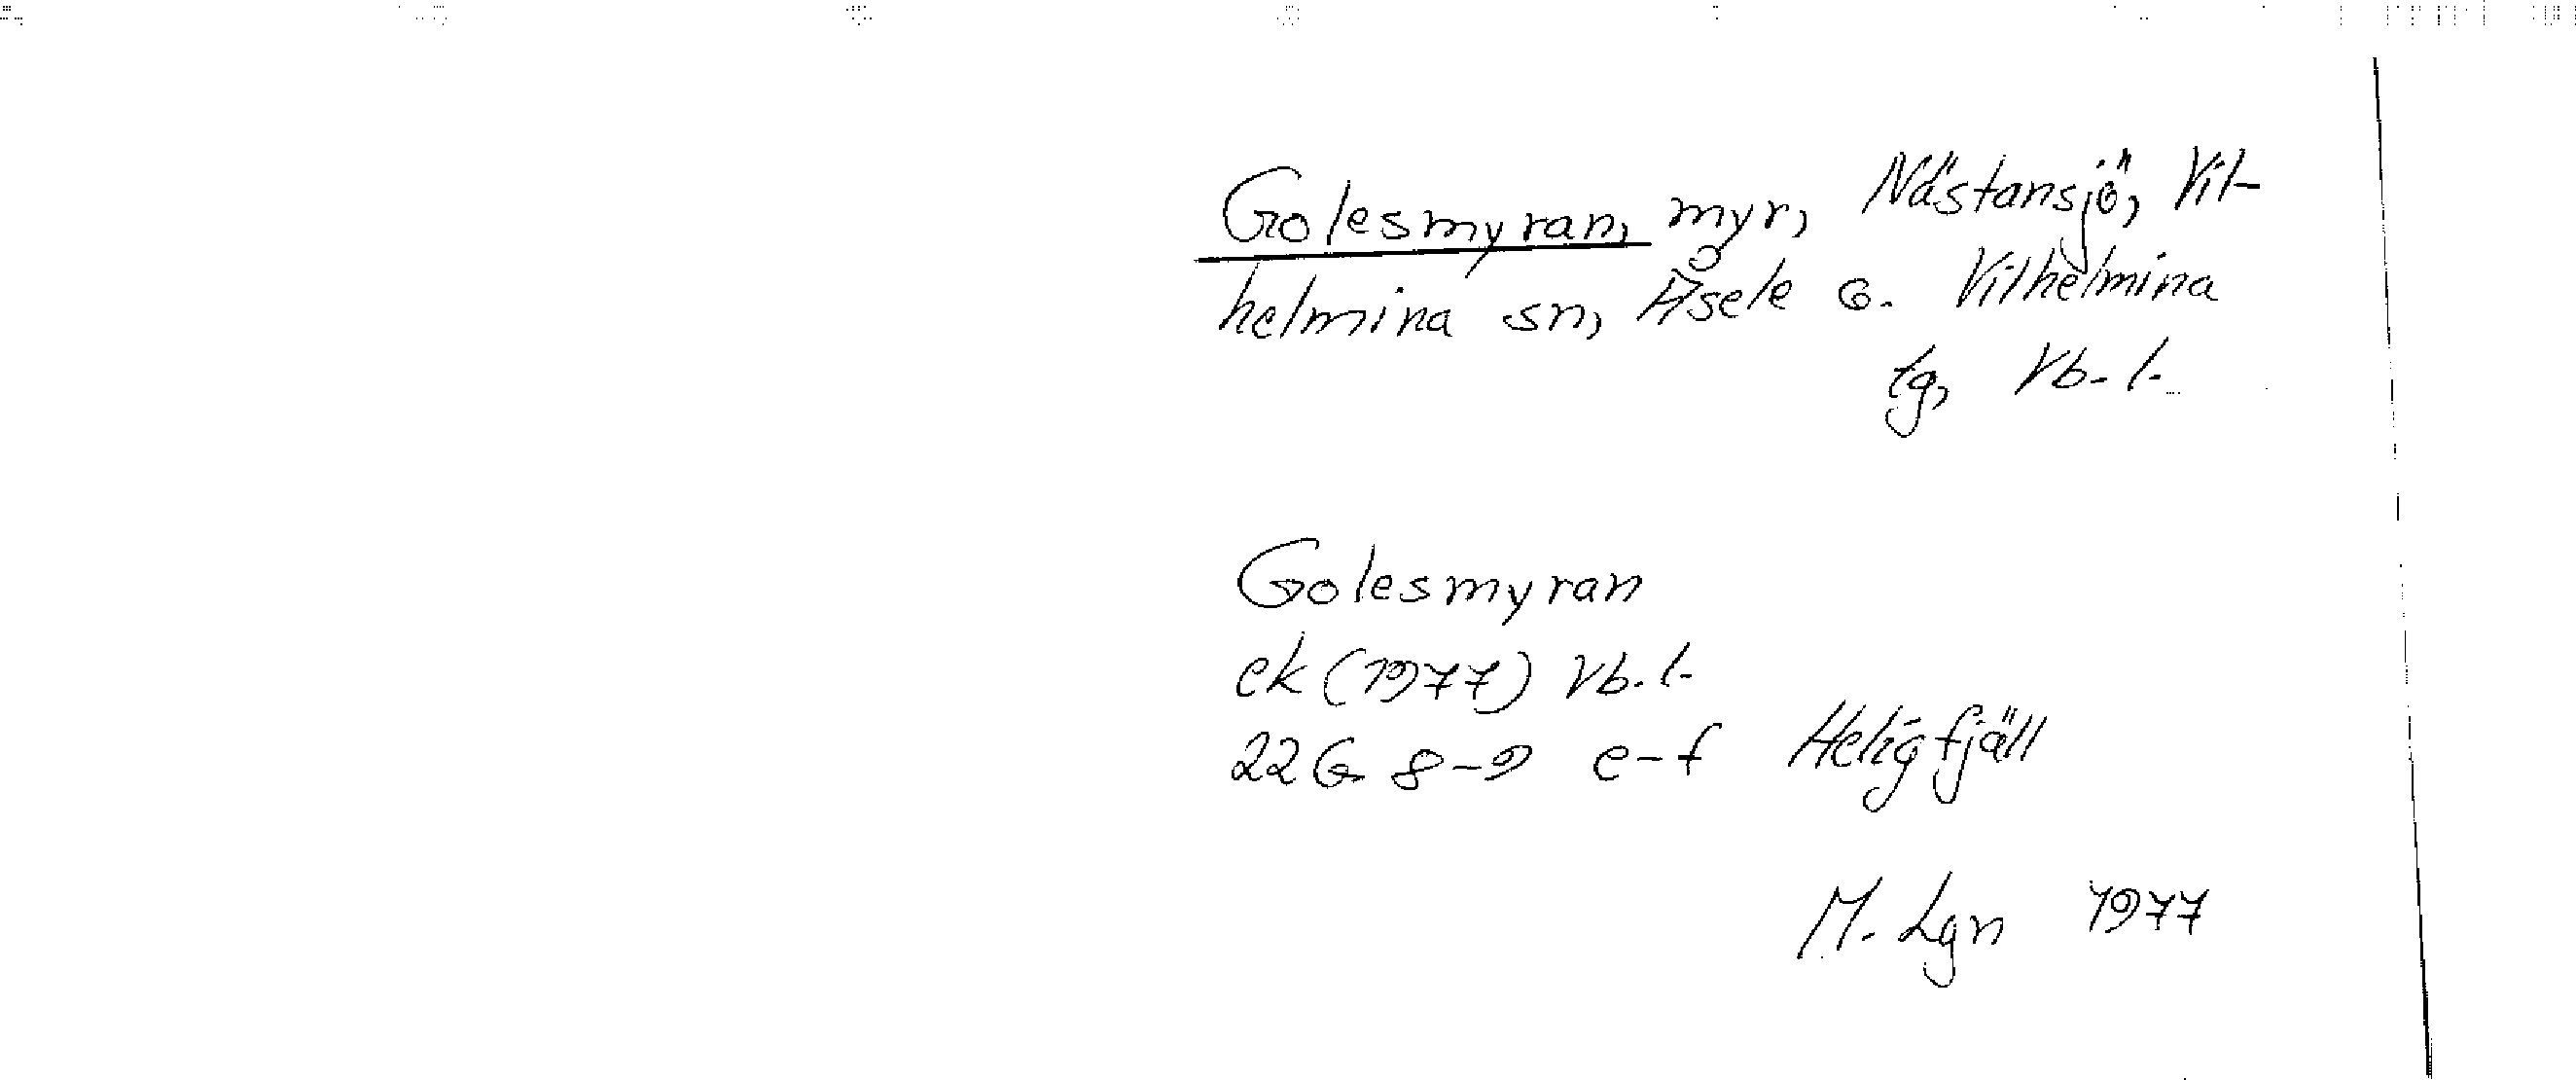 Golesmyran, myr, Nästansjö, Vil-
helmina sn, Åsele o. Vilhelmina
tg, Vb. l.
Golesmyran
ek (1977) Vb. l.
22G 8-9 e-f Heligfjäll
M. Lgn 1977